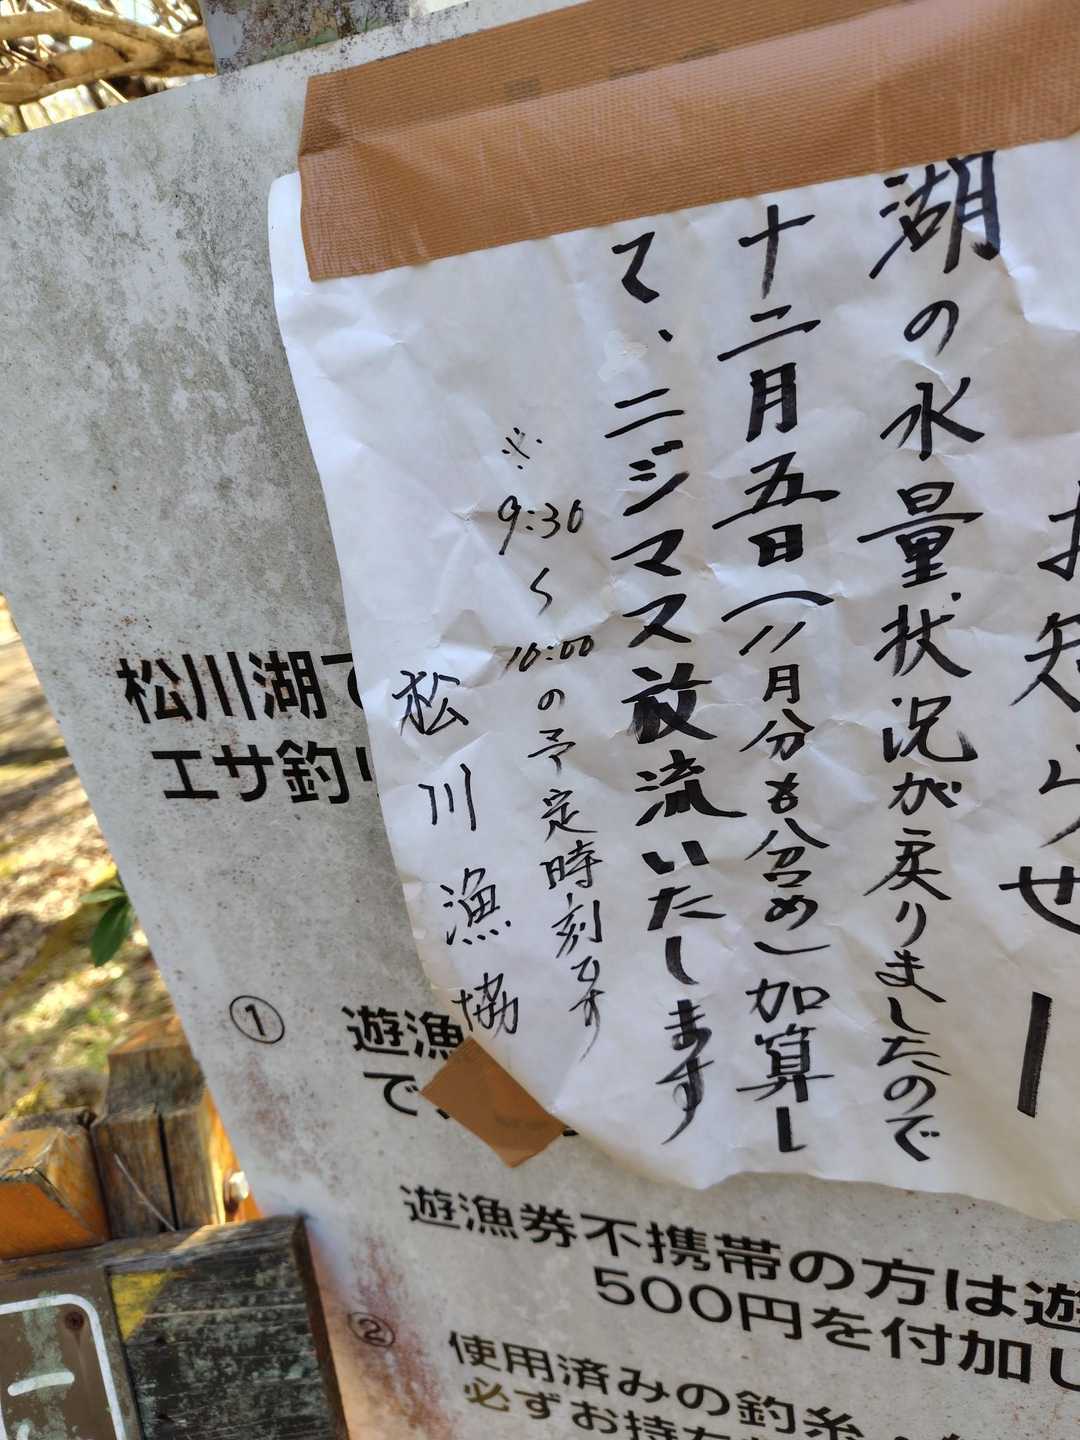 お知らせー
湖の水量状況が戻りましたので
十二月五日(11月分も含め)加算し
て、ニジマス放流いたします
※9:30〜10:00の予定時刻です
松川漁協
松川湖で
エサ釣り
①
遊漁
で、
遊漁券不携帯の方は遊
500円を付加し
②
使用済みの釣糸、
必ずお持ち